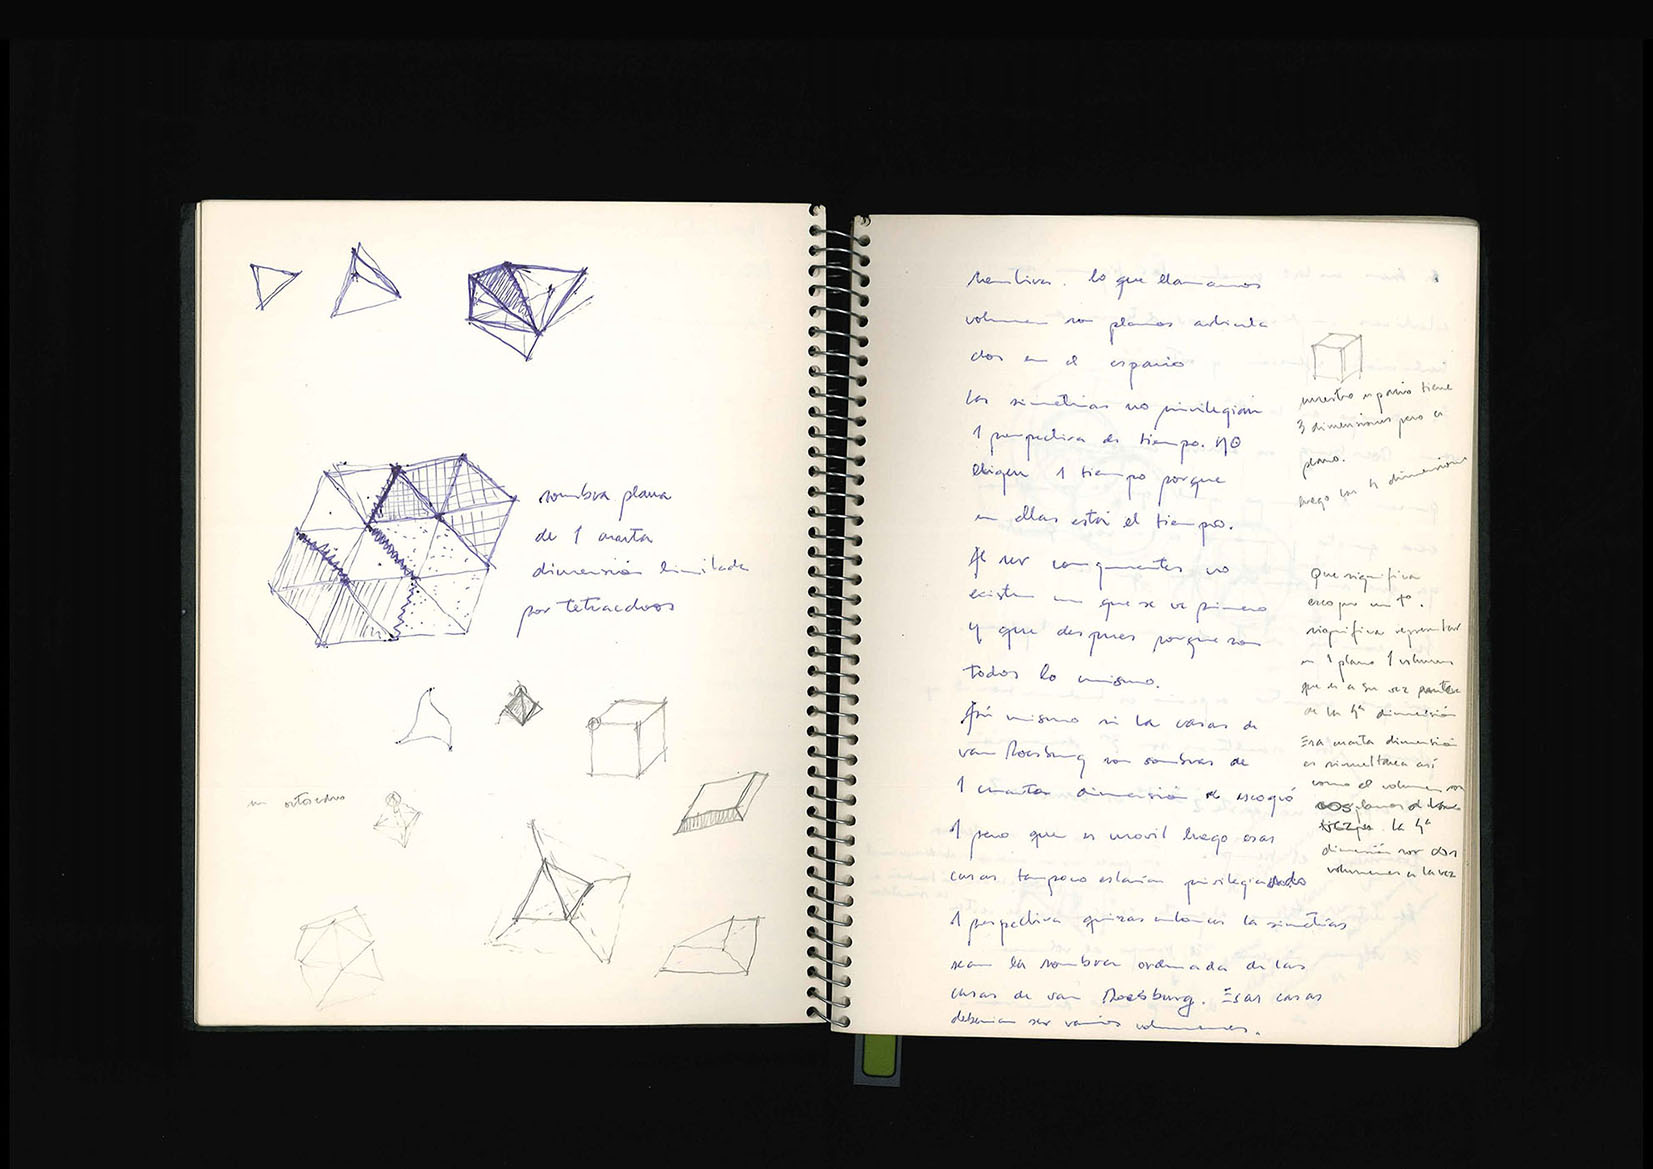 sombra plana
de 1 cuarta
dimensión limitada
por tetraedros
un octaedro
lo que llamamos
volumen son planos articula
dos en el espacio
las simetrías no privilegian
1 perspectiva de tiempo. NO
eligen 1 tiempo porque
en ellas está el tiempo.
Al ser congruentes no
existe un que se ve primero
y que despues porque son
todos lo mismo.
Asi mismo si la casas de
van Doesburg son sombras de
1 cuarta dimensión se escogió
1 pero que es movil luego esas
casas tampoco estarían privilegiando
1 perspectiva quizas entonces la simetrias
sean la sombra ordenada de las
casas de van Doesburg. Esas casas
deberian ser varios volumenes.
nuestro espacio tiene
3 dimensiones pero es
plano.
luego las 4 dimensiones
Que significa
escoger un tº.
significa representar
en 1 plano 1 volumen
que es a su vez
de la 4ª dimensión
Esa cuarta dimensión
es simultanea así
como el volumen son
planos
la 4ª
dimensión son dos
volumenes a la vez